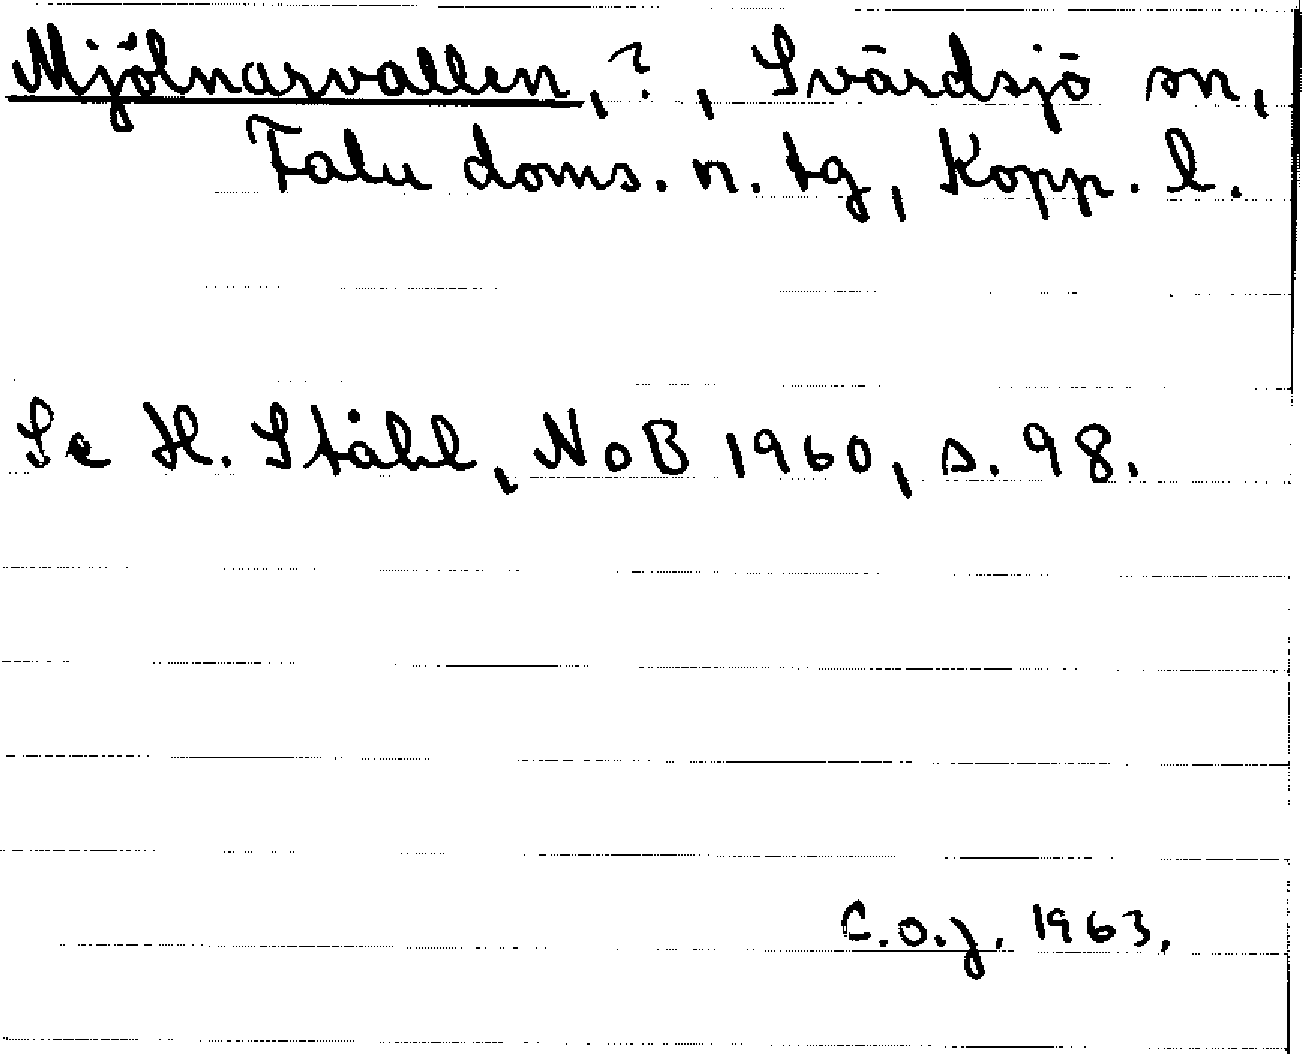 Mjölnarvallen, ?, Svärdsjö sn,
Falu doms. n. tg, Kopp. l.
Se H. Ståhl, NoB 1960, s. 98.
C.O.J. 1963.